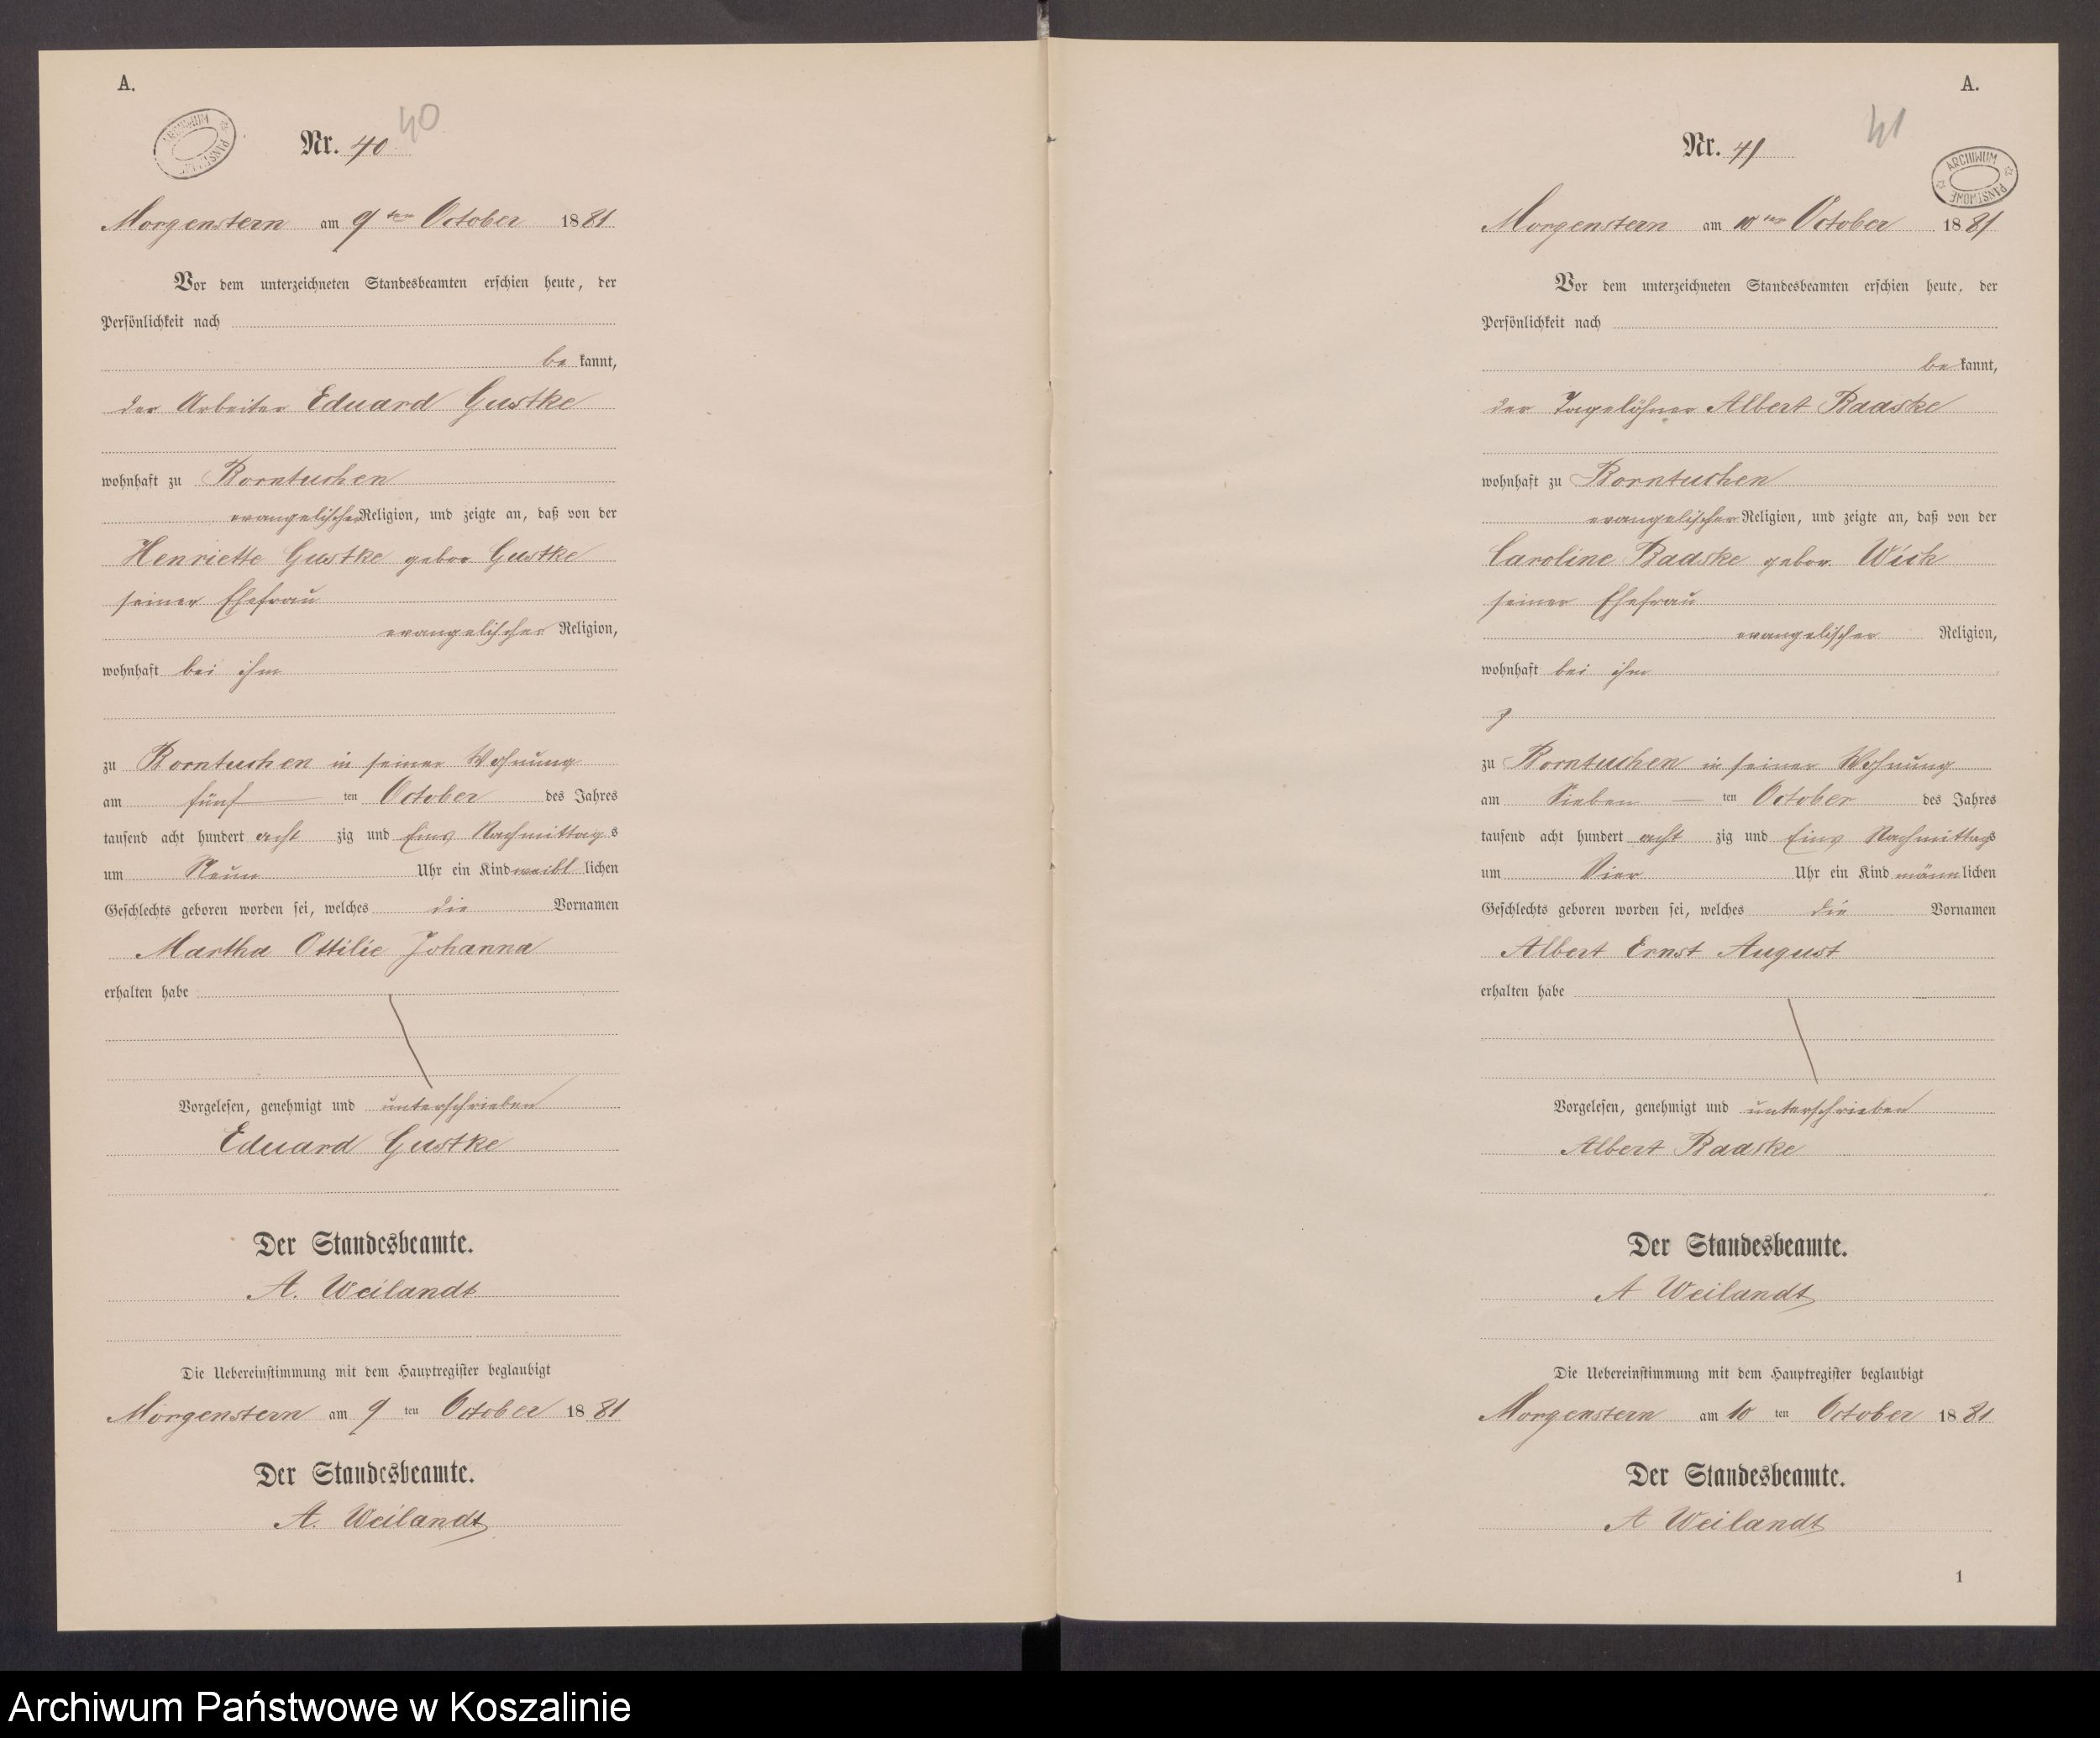 A.
ARCHIWUM PAŃSTWOWE
40
Nr. 40
Morgenstern am 9ten October 1881
Vor dem unterzeichneten Standesbeamten erschien heute, der
Persönlichkeit nach
be kannt,
der Arbeiter Eduard Gustke
wohnhaft zu Borntuchen
evangelischer Religion, und zeigte an, daß von der
Henriette Gustke gebor Gustke
seiner Ehefrau
evangelischer Religion,
wohnhaft bei ihm
zu Borntuchen in seiner Wohnung
am fünf ten October des Jahres
tausend acht hundert acht zig und Eins Nachmittag s
um Neun Uhr ein Kind weibl lichen
Geschlechts geboren worden sei, welches die Vornamen
Martha Ottilie Johanna
erhalten habe
Vorgelesen, genehmigt und unterschrieben
Eduard Gustke
Der Standesbeamte.
A. Weilandt
Die Uebereinstimmung mit dem Hauptregister beglaubigt
Morgenstern am 9 ten October 1881
Der Standesbeamte.
A. Weilandt
A.
41
Nr. 41
ARCHIWUM PAŃSTWOWE
Morgenstern am 10ten October 1881
Vor dem unterzeichneten Standesbeamten erschien heute, der
Persönlichkeit nach
be kannt,
der Tagelöhner Albert Baaske
wohnhaft zu Borntuchen
evangelischer Religion, und zeigte an, daß von der
Caroline Baaske gebor. Wick
seiner Ehefrau
evangelischer Religion,
wohnhaft bei ihm
zu Borntuchen in seiner Wohnung
am Sieben ten October des Jahres
tausend acht hundert acht zig und Eins Nachmittags
um Vier Uhr ein Kind männ lichen
Geschlechts geboren worden sei, welches die Vornamen
Albert Ernst August
erhalten habe
Vorgelesen, genehmigt und unterschrieben
Albert Baaske
Der Standesbeamte.
A Weilandt
Die Uebereinstimmung mit dem Hauptregister beglaubigt
Morgenstern am 10 ten October 1881
Der Standesbeamte.
A Weilandt
1
Archiwum Państwowe w Koszalinie